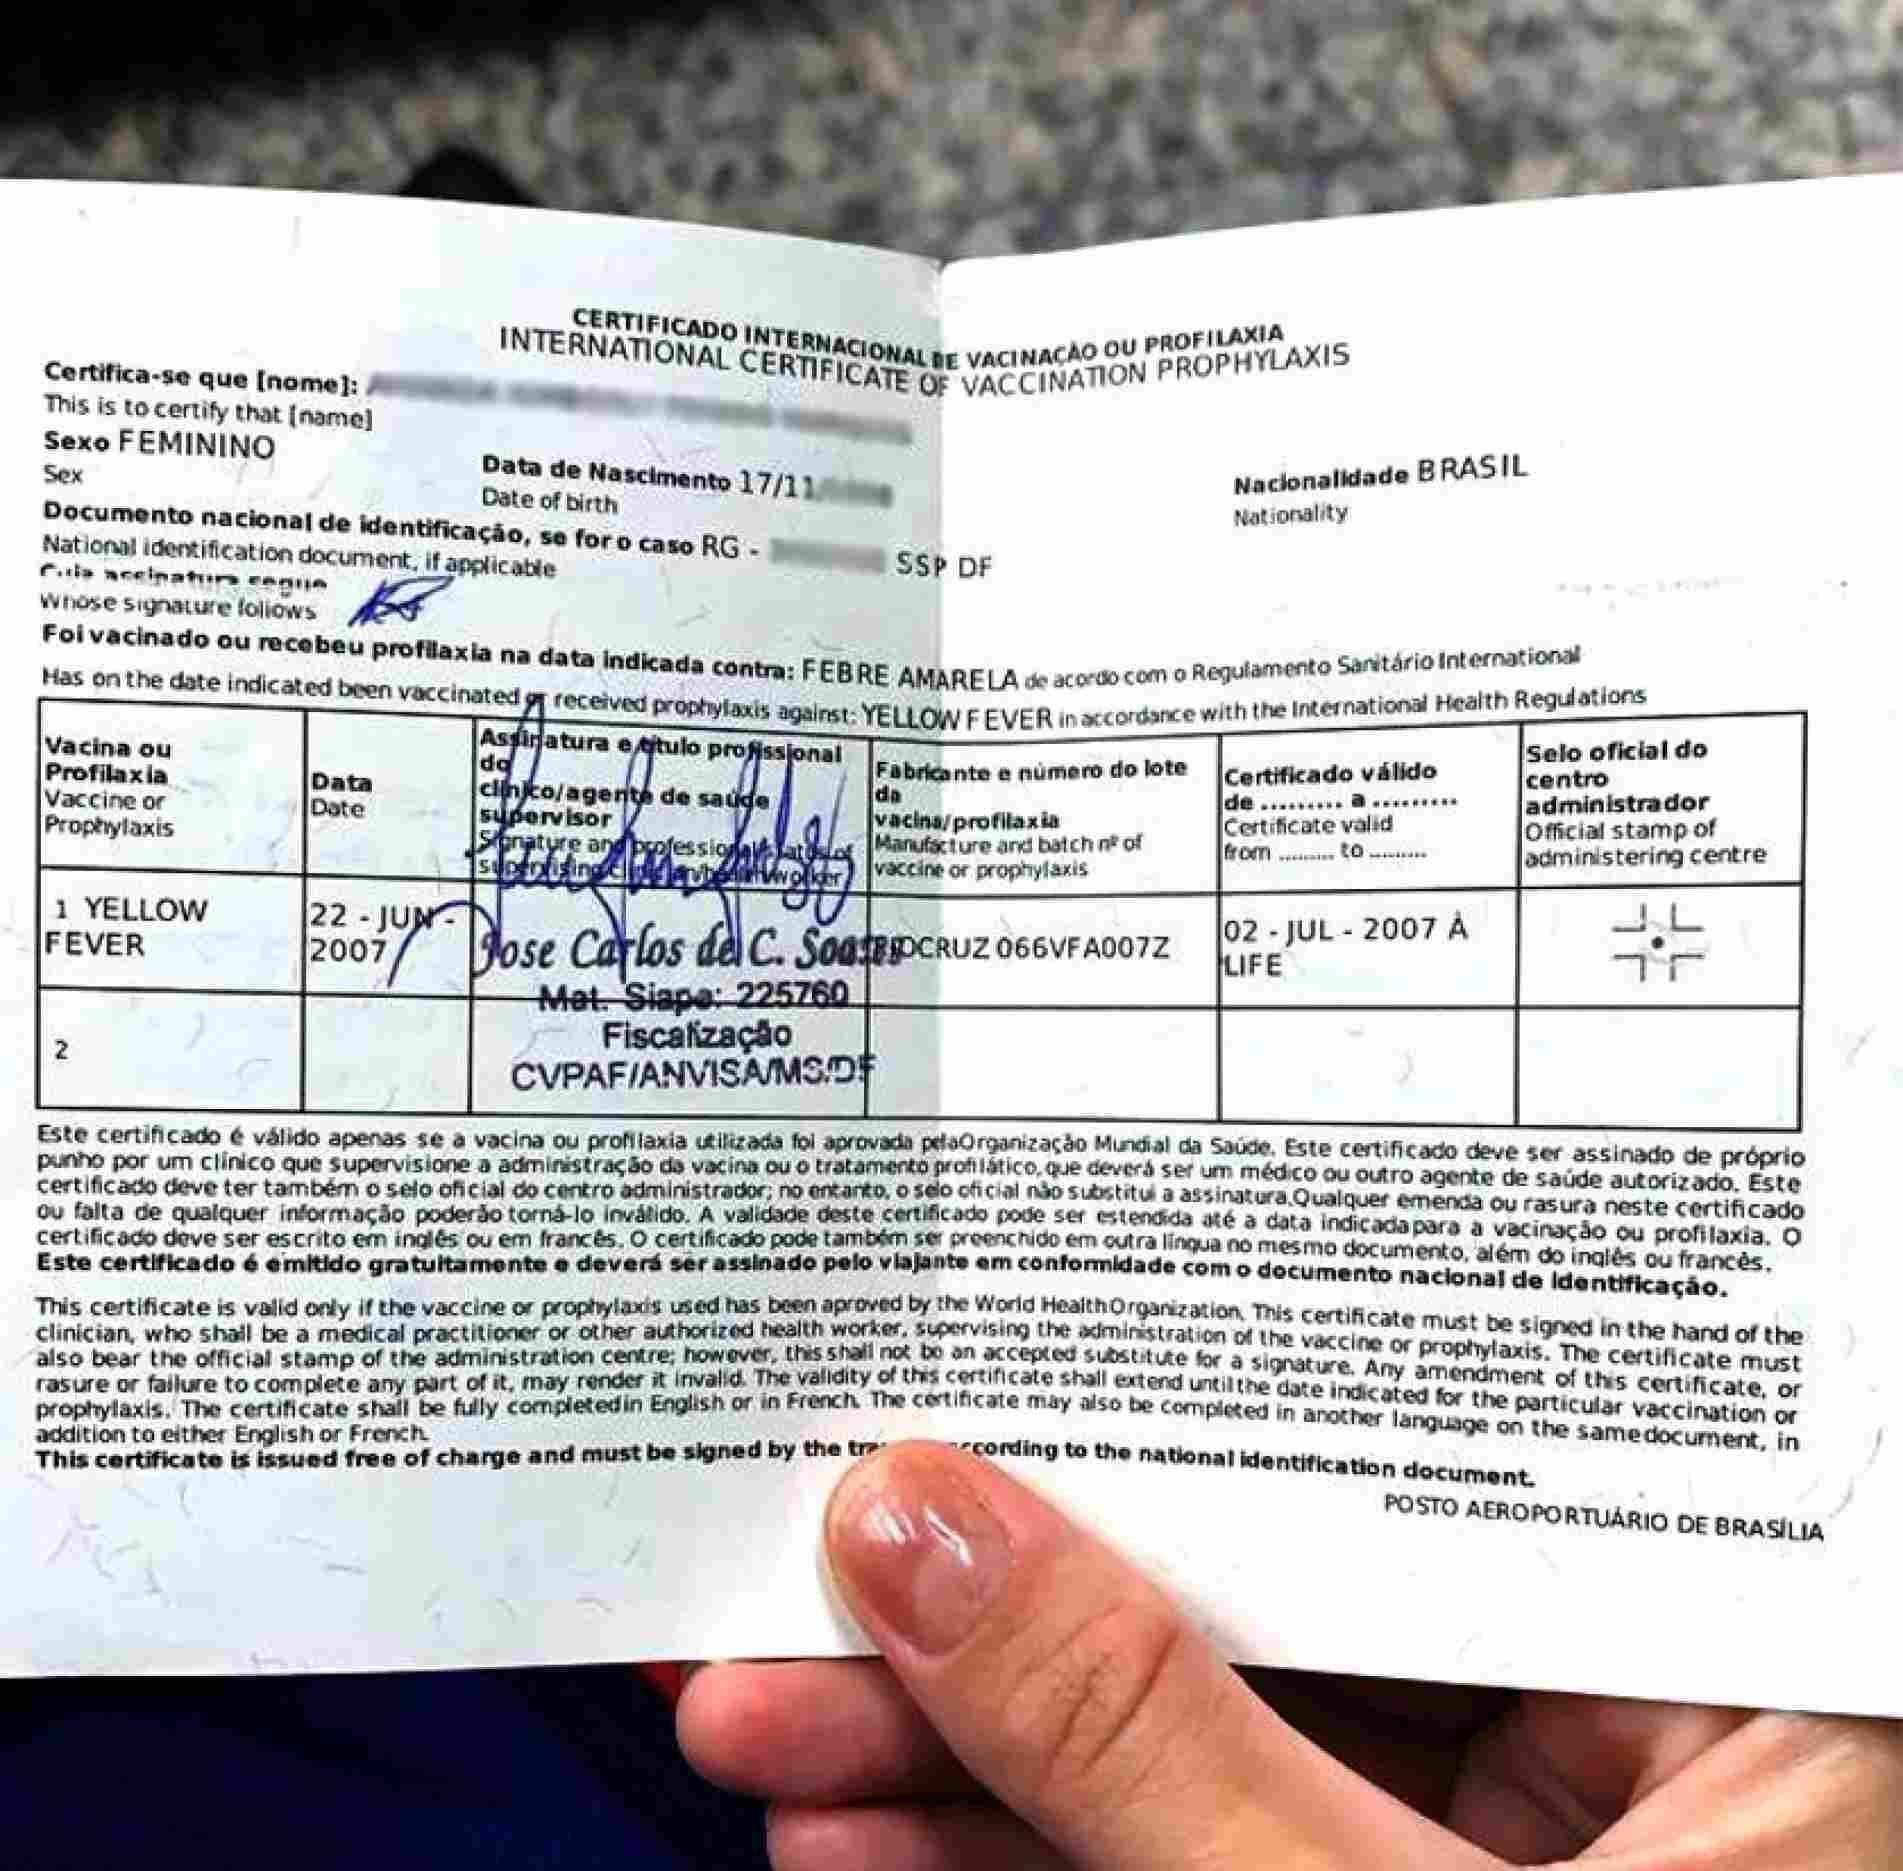 CERTIFICADO INTERNACIONAL DE VACINAÇÃO OU PROFILAXIA
INTERNATIONAL CERTIFICATE OF VACCINATION PROPHYLAXIS
Certifica-se que [nome]:
This is to certify that [name]
Sexo FEMININO
Sex
Data de Nascimento 17/11/
Date of birth
Nacionalidade BRASIL
Nationality
Documento nacional de identificação, se for o caso RG - SSP DF
National identification document, if applicable
Cuja assinatura segue
Whose signature follows
Foi vacinado ou recebeu profilaxia na data indicada contra: FEBRE AMARELA de acordo com o Regulamento Sanitário International
Has on the date indicated been vaccinated or received prophylaxis against: YELLOW FEVER in accordance with the International Health Regulations
Vacina ou
Profilaxia
Vaccine or
Prophylaxis
Data
Date
Assinatura e título profissional
do
clínico/agente de saúde
supervisor
Signature and professional status of
supervising clinician/health worker
Fabricante e número do lote
da
vacina/profilaxia
Manufacture and batch nº of
vaccine or prophylaxis
Certificado válido
de ......... a .........
Certificate valid
from ......... to .........
Selo oficial do
centro
administrador
Official stamp of
administering centre
1 YELLOW
FEVER
22 - JUN -
2007
Jose Carlos de C. Soares
Mat. Siape: 225760
Fiscalização
CVPAF/ANVISA/MS/DF
OCRUZ 066VFA007Z
02 - JUL - 2007 À
LIFE
2
Este certificado é válido apenas se a vacina ou profilaxia utilizada foi aprovada pelaOrganização Mundial da Saúde. Este certificado deve ser assinado de próprio
punho por um clínico que supervisione a administração da vacina ou o tratamento profilático, que deverá ser um médico ou outro agente de saúde autorizado. Este
certificado deve ter também o selo oficial do centro administrador; no entanto, o selo oficial não substitui a assinatura.Qualquer emenda ou rasura neste certificado
ou falta de qualquer informação poderão torná-lo inválido. A validade deste certificado pode ser estendida até a data indicada para a vacinação ou profilaxia. O
certificado deve ser escrito em inglês ou em francês. O certificado pode também ser preenchido em outra língua no mesmo documento, além do inglês ou francês.
Este certificado é emitido gratuitamente e deverá ser assinado pelo viajante em conformidade com o documento nacional de identificação.
This certificate is valid only if the vaccine or prophylaxis used has been aproved by the World Health Organization. This certificate must be signed in the hand of the
clinician, who shall be a medical practitioner or other authorized health worker, supervising the administration of the vaccine or prophylaxis. The certificate must
also bear the official stamp of the administration centre; however, this shall not be an accepted substitute for a signature. Any amendment of this certificate, or
rasure or failure to complete any part of it, may render it invalid. The validity of this certificate shall extend until the date indicated for the particular vaccination or
prophylaxis. The certificate shall be fully completed in English or in French. The certificate may also be completed in another language on the same document, in
addition to either English or French.
This certificate is issued free of charge and must be signed by the according to the national identification document.
POSTO AEROPORTUÁRIO DE BRASÍLIA